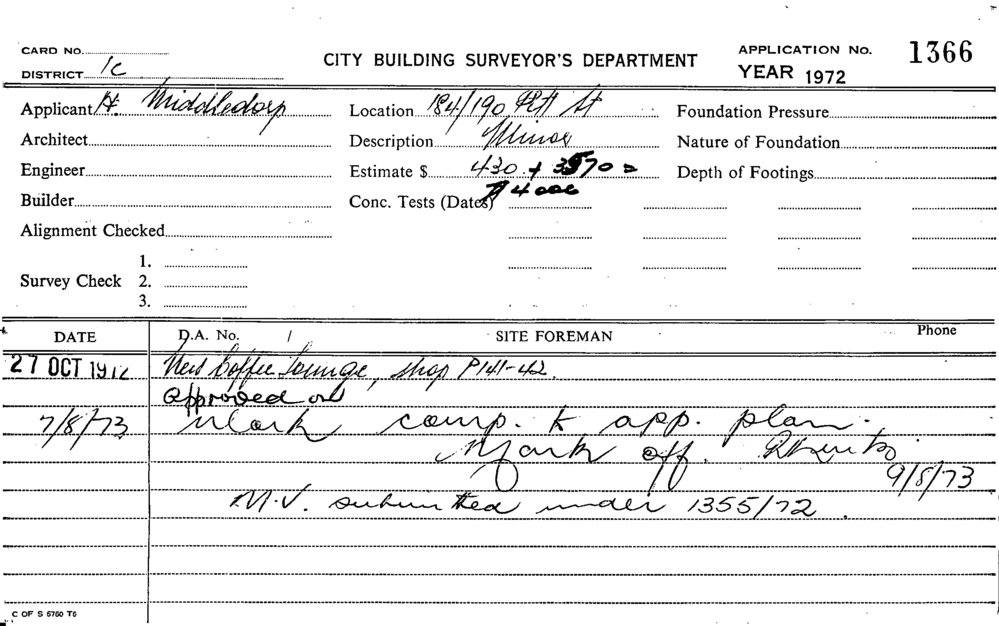 CARD NO.
DISTRICT 1C
CITY BUILDING SURVEYOR'S DEPARTMENT
APPLICATION No. 1366
YEAR 1972
Applicant H. Middledorp
Location 184/190 Pitt St
Foundation Pressure
Architect
Description Minor
Nature of Foundation
Engineer
Estimate $ 430 + 3570 =
Depth of Footings
Builder
Conc. Tests (Dates) $4000
Alignment Checked
1.
Survey Check 2.
3.
DATE D.A. No. / SITE FOREMAN Phone
27 OCT 1972 New Coffee Lounge, shop P141-42.
Approved on
7/8/73 Work comp. to app. plan.
Mark off.
9/8/73
M.V. submitted under 1355/72.
C OF S 5760 T6